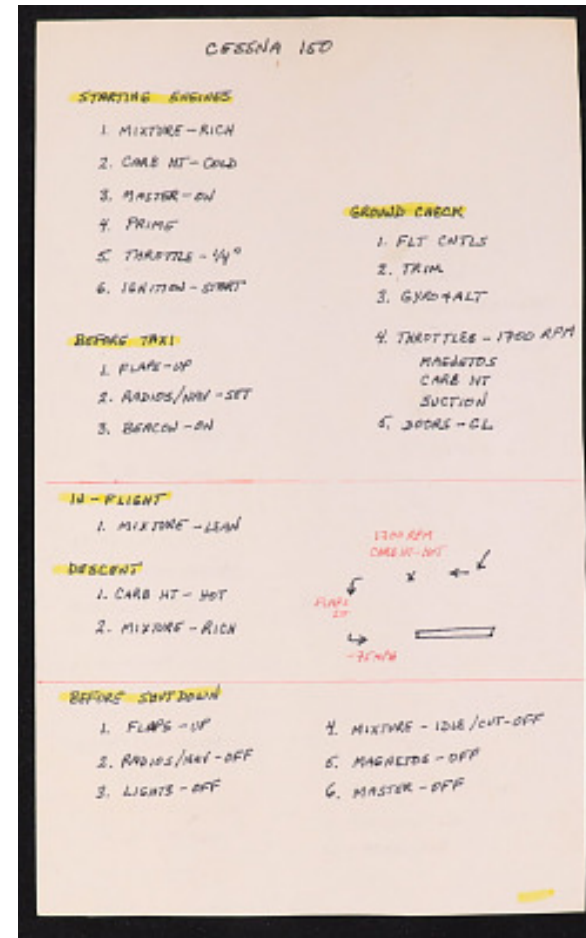 CESSNA 150
STARTING ENGINES
1. MIXTURE - RICH
2. CARB HT - COLD
3. MASTER - ON
4. PRIME
5. THROTTLE - 1/4"
6. IGNITION - START
BEFORE TAXI
1. FLAPS - UP
2. RADIOS/NAV - SET
3. BEACON - ON
GROUND CHECK
1. FLT CNTLS
2. TRIM
3. GYRO + ALT
4. THROTTLES - 1700 RPM
MAGNETOS
CARB HT
SUCTION
5. DOORS - CL
IN-FLIGHT
1. MIXTURE - LEAN
DESCENT
1. CARB HT - HOT
2. MIXTURE - RICH
1700 RPM
CARB HT - HOT
X
FLAPS
-75 MPH
BEFORE SHUTDOWN
1. FLAPS - UP
2. RADIOS/NAV - OFF
3. LIGHTS - OFF
4. MIXTURE - IDLE/CUT-OFF
5. MAGNETOS - OFF
6. MASTER - OFF